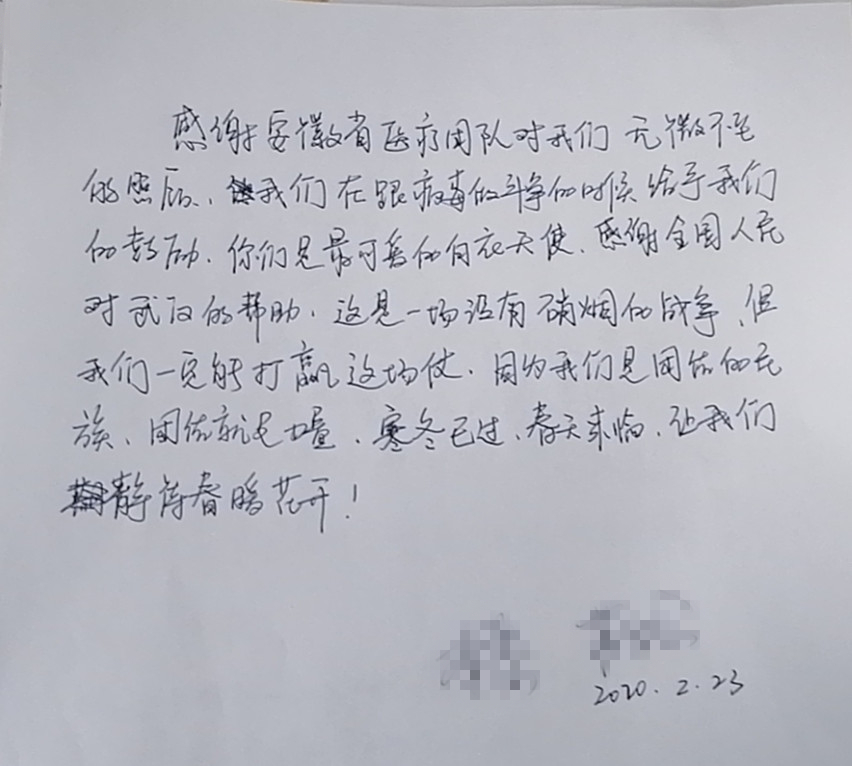 感谢安徽省医疗团队对我们无微不至
的照顾、我们在跟病毒做斗争的时候给予我们
的鼓励、你们是最可爱的白衣天使、感谢全国人民
对武汉的帮助、这是一场没有硝烟的战争、但
我们一定能打赢这场仗、因为我们是团结的民
族、团结就是力量、寒冬已过、春天来临、让我们
静待春暖花开！
2020.2.23